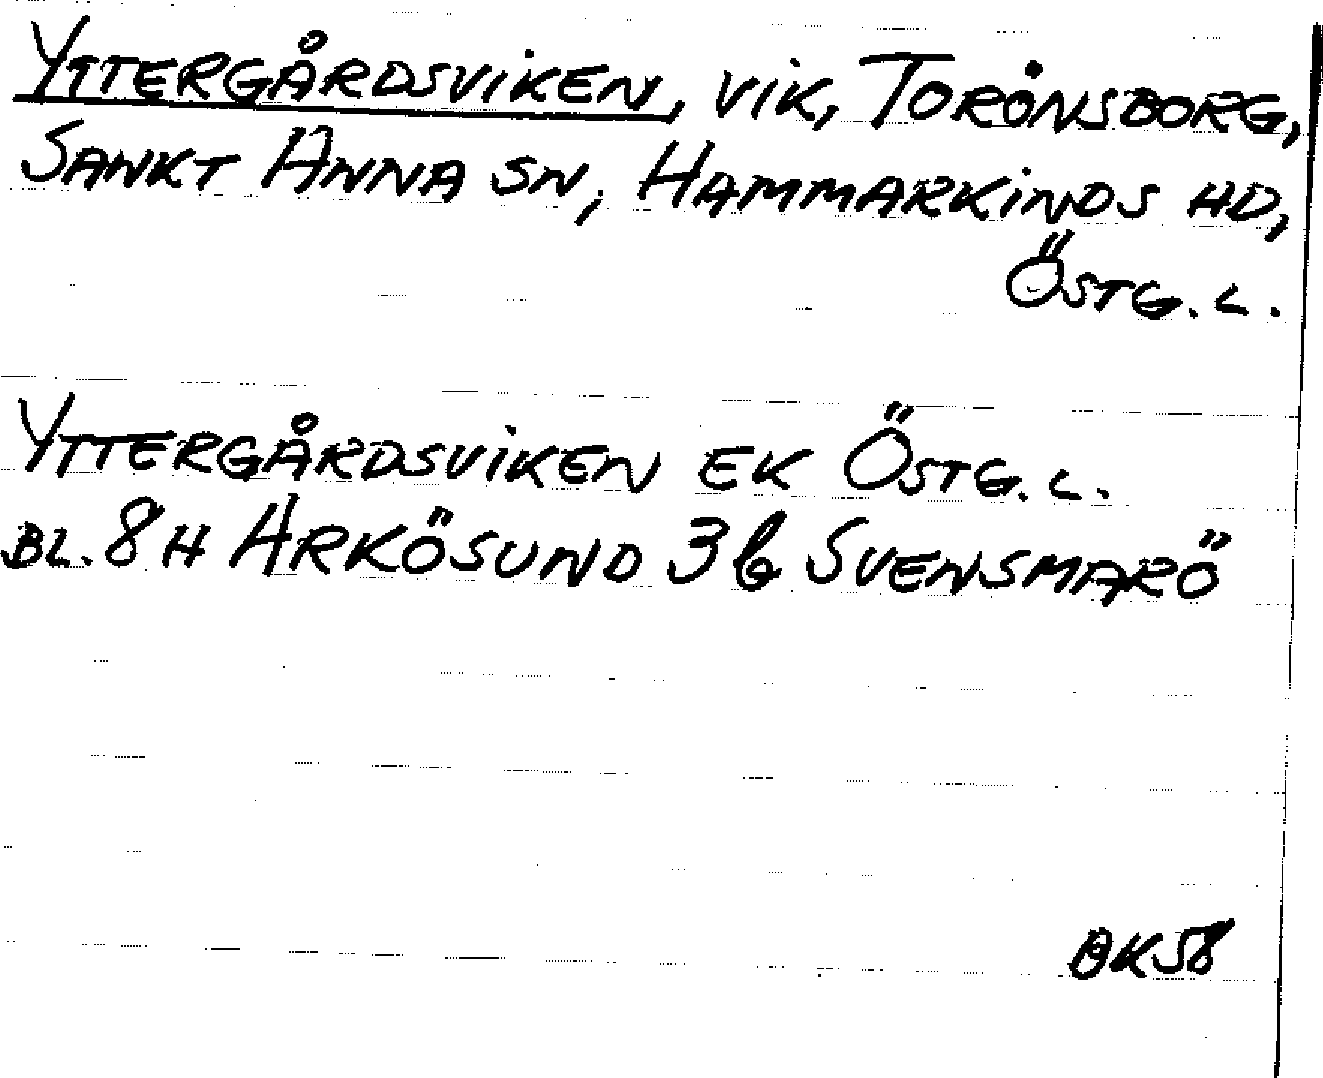 YTTERGÅRDSVIKEN, VIK, TORÖNSBORG,
SANKT ANNA SN, HAMMARKINDS HD,
ÖSTG. L.
YTTERGÅRDSVIKEN EK ÖSTG. L.
BL. 8 H ARKÖSUND 3 b SVENSMARÖ
BK58